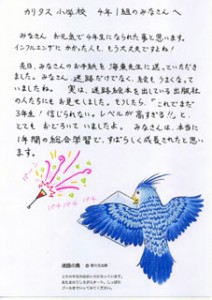 カリタス小学校 4年1組のみなさんへ
みなさん お元気で4年生になられた事と思います。
インフルエンザに かかった人も、もう大丈夫ですよね!
先日、みなさんのお手紙を 海東先生に送っていただき
ました。みなさん 迷路だけでなく、絵をもうまくなって
いましたね。 実は、迷路絵本を出している出版社
の人たちにもお見せしました。そうしたら、「これでまだ
3年生!信じられない。レベルが高すぎる!!」と、
とてもおどろいていました。 みなさんは、本当に
1年間の総合学習で、すばらしく成長されたと思い
ます。
パチ パチ パチ
迷路の鳥